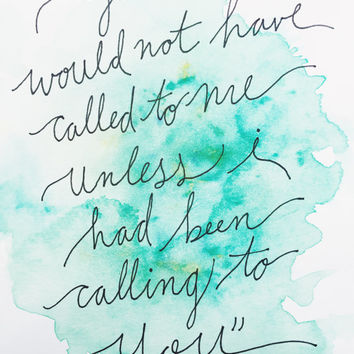 would not have
called to me
unless i
had been
calling to
you"